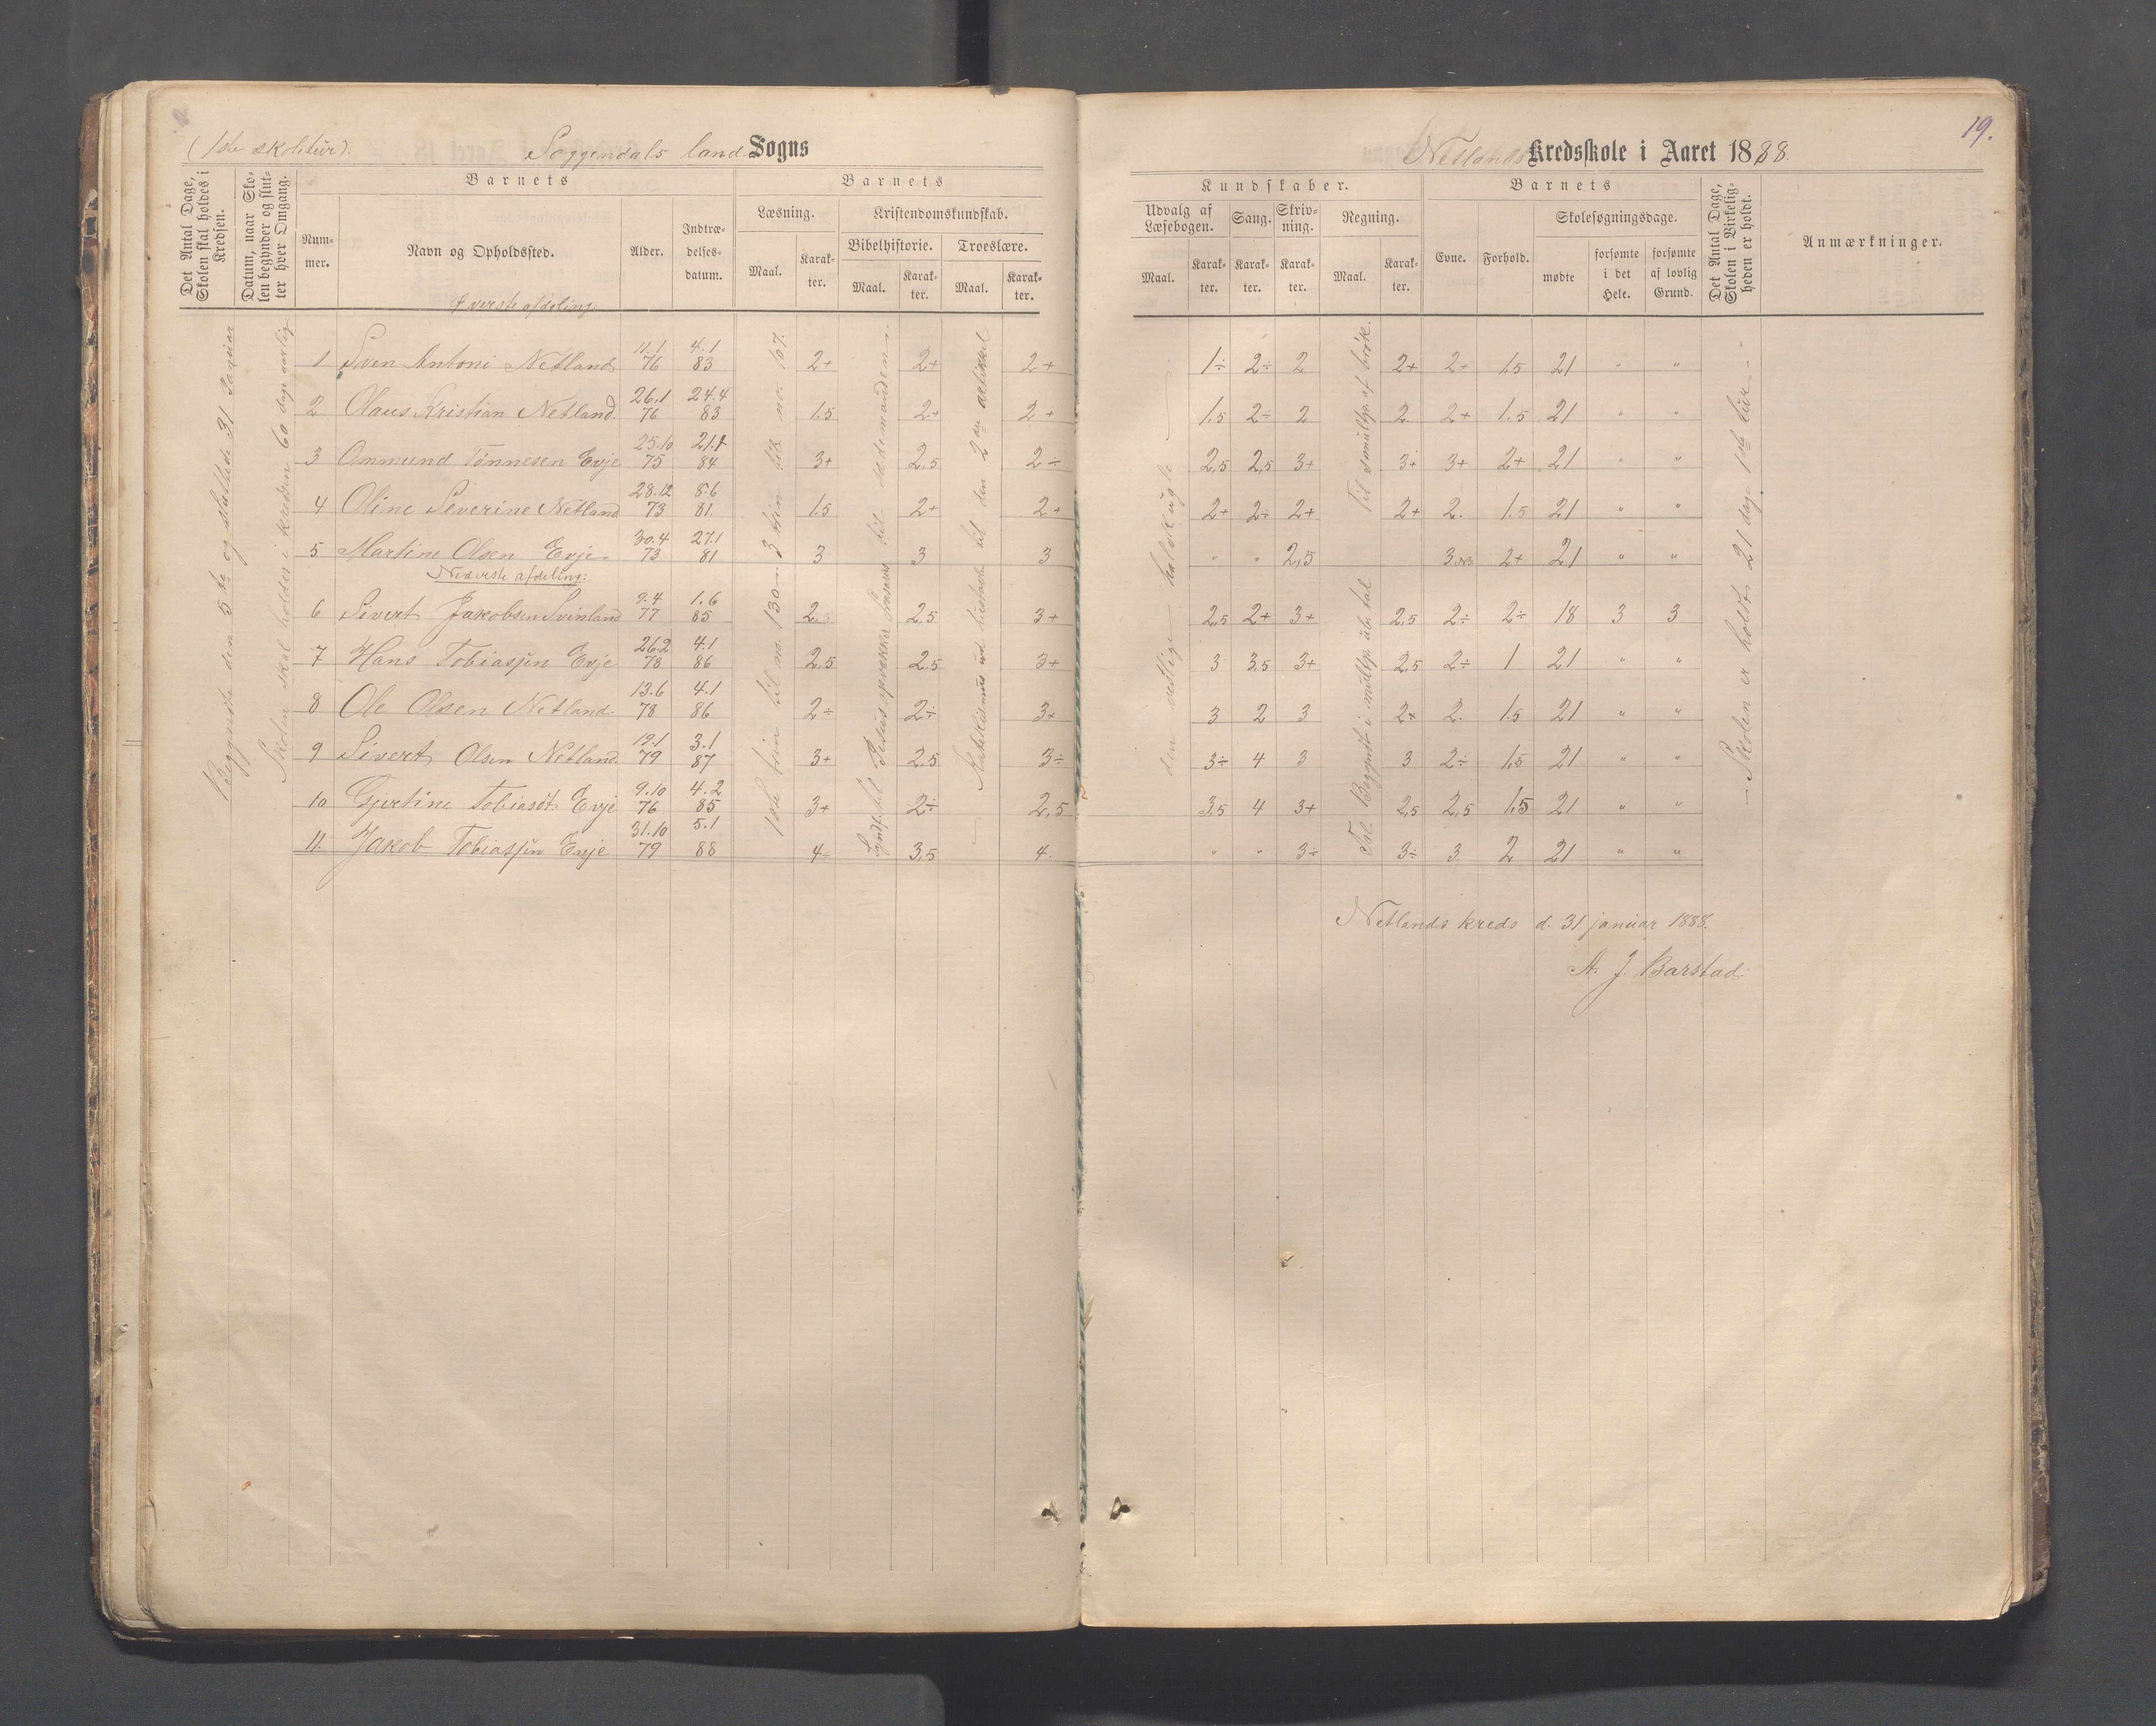 19.
(1ste skoletur). Soggendals land Sogns
Netlands Kredsskole i Aaret 1888.
Det Antal Dage, Skolen skal holdes i Kredsen.
Datum, naar Skolen begynder og slutter hver Omgang.
Barnets
Nummer.
Navn og Opholdssted.
Alder.
Indtrædelsesdatum.
Barnets
Læsning.
Maal.
Karakter.
Kristendomskundskab.
Bibelhistorie.
Maal.
Karakter.
Troeslære.
Maal.
Karakter.
Kundskaber.
Udvalg af Læsebogen.
Maal.
Karakter.
Sang.
Karakter.
Skrivning.
Karakter.
Regning.
Maal.
Karakter.
Barnets
Evne.
Forhold.
Skolesøgningsdage.
mødte
forsømte i det Hele.
forsømte af lovlig Grund.
Det Antal Dage, Skolen i Virkeligheden er holdt.
Anmærkninger.
Øverste afdeling.
1 Sven Antoni Netland 11.1 76 4.1 83 2+ 2+ 2+ 1÷ 2÷ 2 2+ 2+ 1.5 21 " "
2 Olaus Kristian Netland 26.1 76 24.4 83 1.5 2+ 2+ 1.5 2÷ 2 2. 2+ 1.5 21 " "
3 Ommund Tønnesen Evje 25.10 75 21.1 84 3+ 2,5 2÷ 2,5 2,5 3+ 3+ 3+ 2+ 21 " "
4 Oline Severine Netland 28.12 73 8.6 81. 1.5 2+ 2+ 2+ 2÷ 2+ 2+ 2. 1.5 21 " "
5 Martine Olsen Evje 30.4 73 27.1 81 3 3 3 " " 2,5 3 2+ 21 " "
Nederste afdeling:
6 Sivert Jakobsen Svinland 9.4 77 1.6 85 2.5 2,5 3+ 2,5 2+ 3+ 2,5 2÷ 2÷ 18 3 3
7 Hans Tobiassen Evje 26.2 78 4.1 86 2,5 2,5 3+ 3 3,5 3+ 2,5 2÷ 1 21 " "
8 Ole Olsen Netland. 13.6 78 4.1 86 2÷ 2÷ 3+ 3 2 3 2+ 2. 1.5 21 " "
9 Sivert Olsen Netland. 19.1 79 3.1 87 3+ 2,5 3÷ 3÷ 4 3 3 2÷ 1,5 21 " "
10 Gjertine Tobiasdt. Evje 9.10 76 4.2 85 3+ 2÷ 2,5 3,5 4 3+ 2,5 2,5 1,5 21 " "
11. Jakob Tobiassen Evje 31.10 79 5.1 88 4÷ 3,5 4. " " 3÷ 3÷ 3. 2 21 " "
Begyndte den 5te og sluttede 31 Januar
Skolen skal holdes i kredsen 60 dage aarlig
1ste trin til no. 130 – 3 trin til no. 107.
til den 2den artikkel
Til smultip. af brøk.
Begyndt i multip.
– Skolen er holdt 21 dage 1ste tur –
Netlands kreds d. 31 januar 1888.
A. J. Barstad.